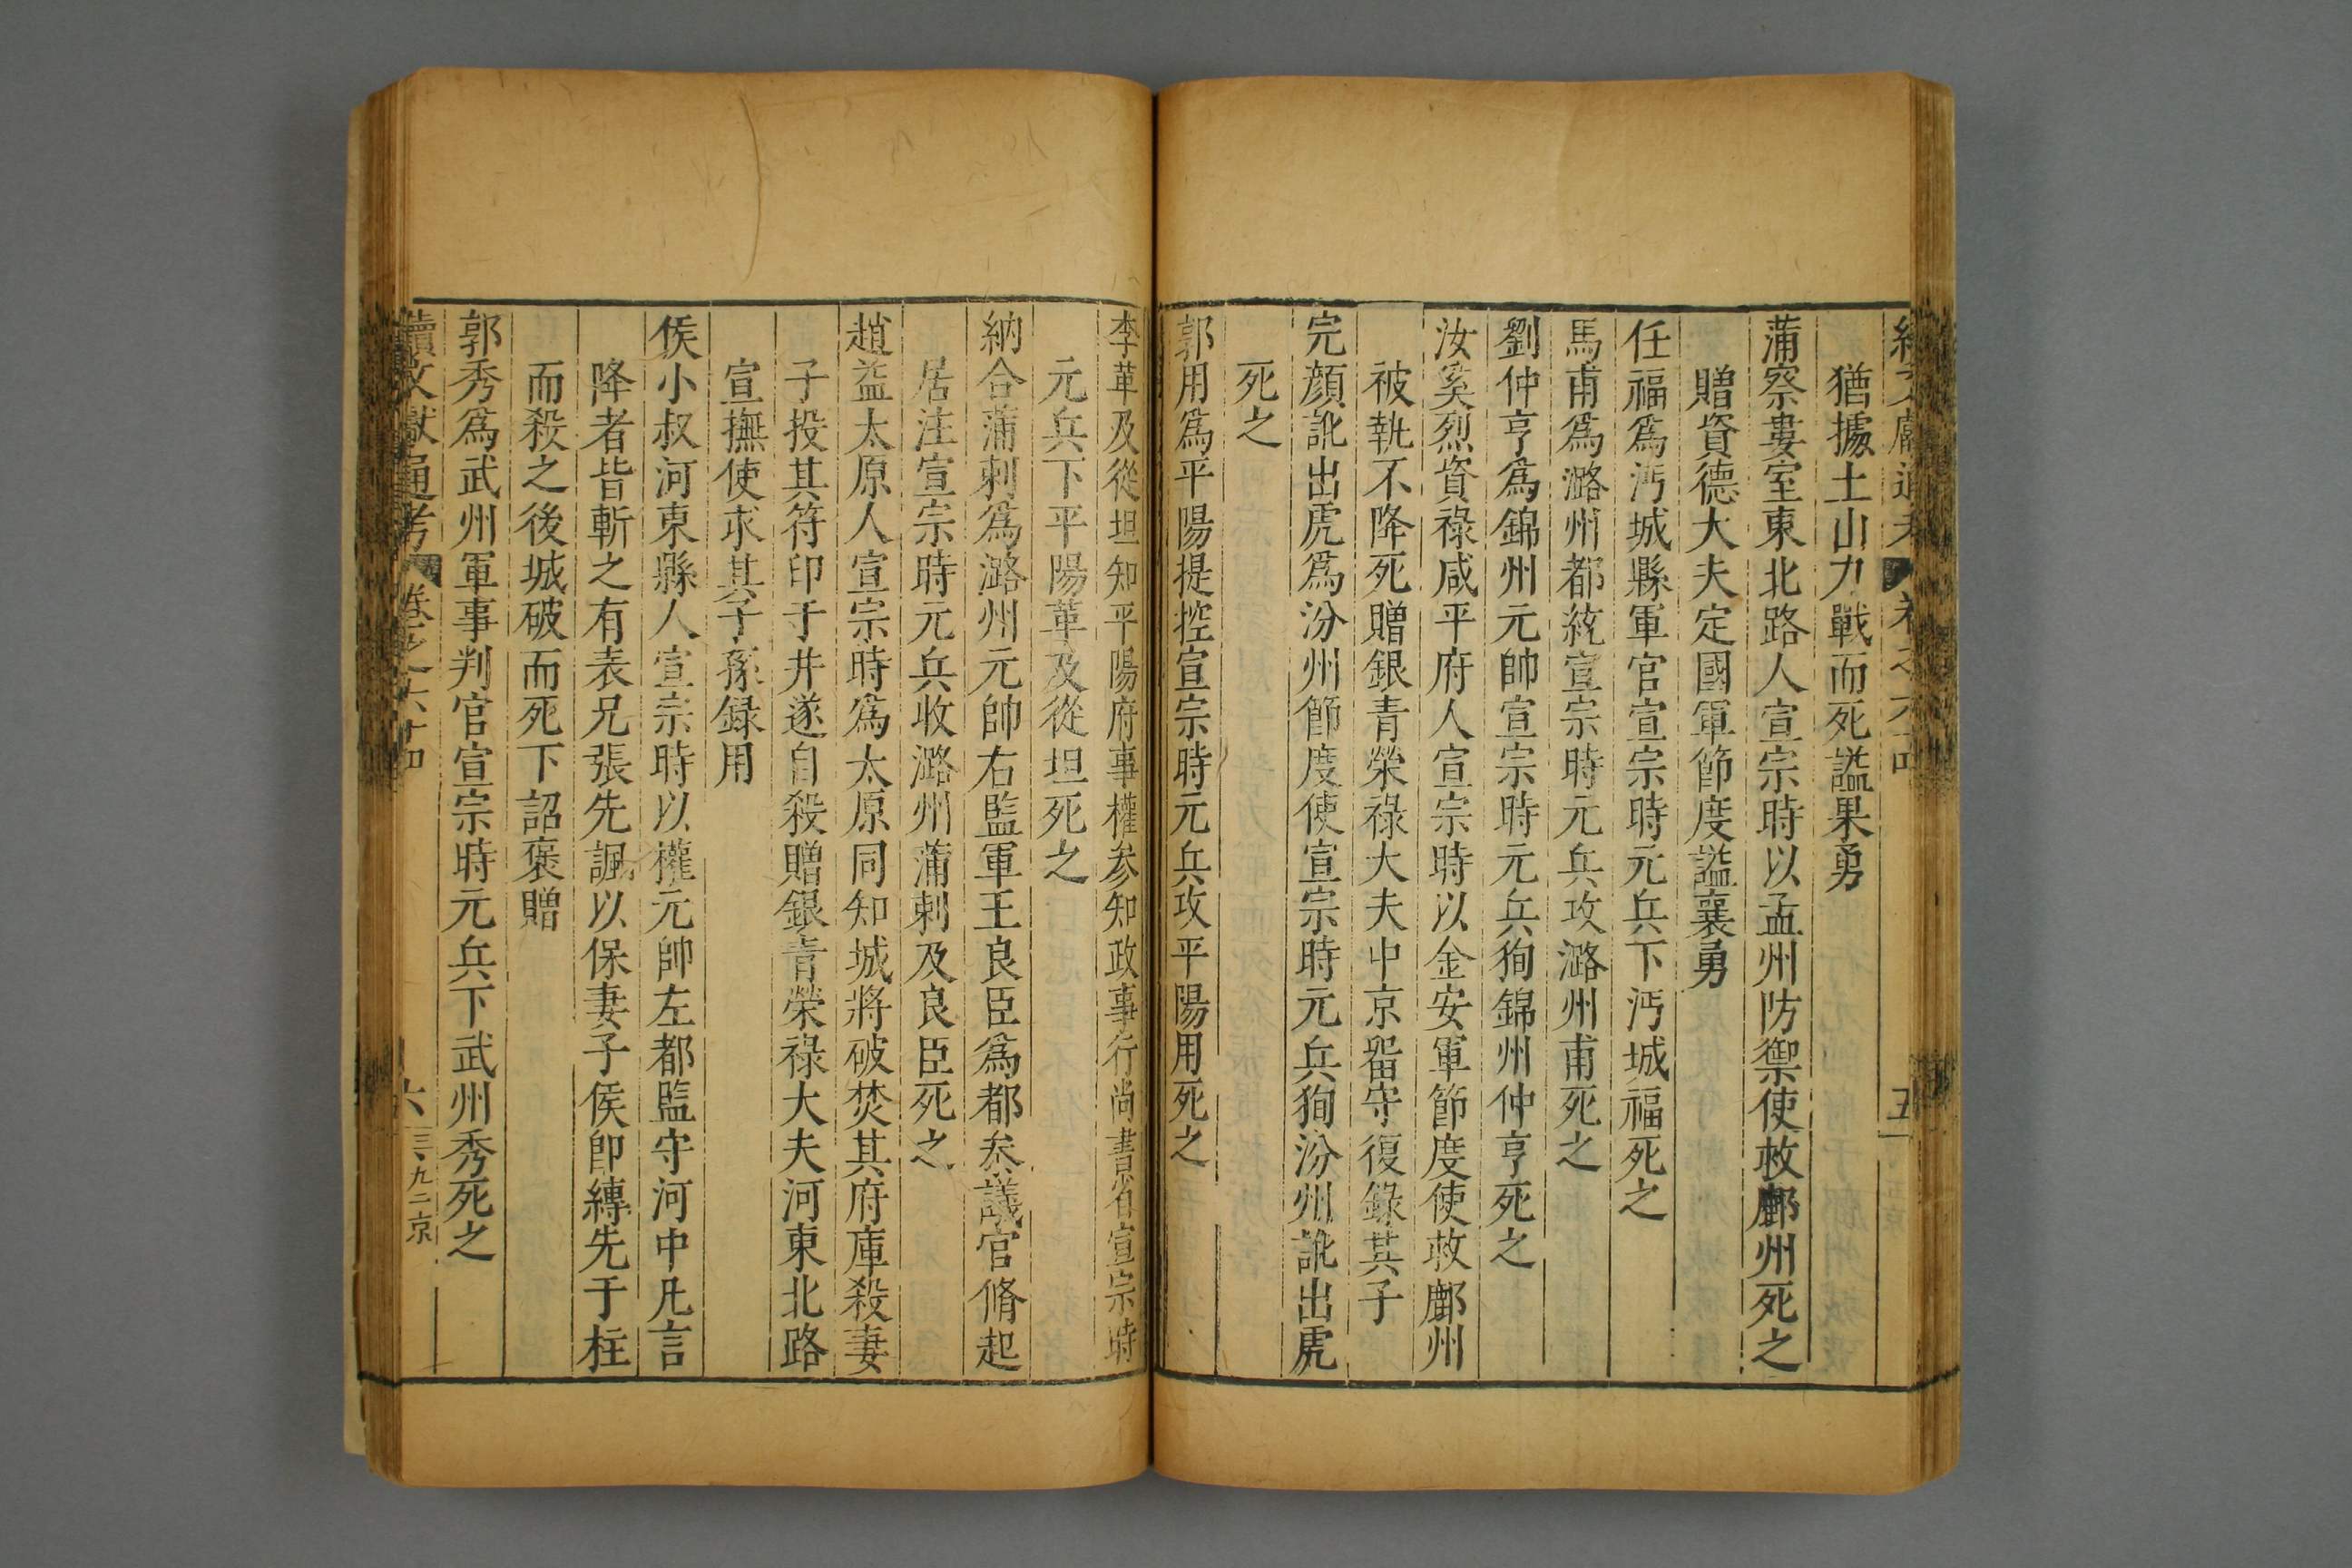 續文獻通考 卷之六十四 五
猶據土山力戰而死謚果勇
蒲察婁室東北路人宣宗時以孟州防禦使救鄜州死之
贈資德大夫定國軍節度謚襄勇
任福爲沔城縣軍官宣宗時元兵下沔城福死之
馬甫爲潞州都統宣宗時元兵攻潞州甫死之
劉仲亨爲錦州元帥宣宗時元兵狥錦州仲亨死之
汝奚烈資祿咸平府人宣宗時以金安軍節度使救鄜州
被執不降死贈銀青榮祿大夫中京畱守復錄其子
完顔訛出虎爲汾州節度使宣宗時元兵狥汾州訛出虎
死之
郭用爲平陽提控宣宗時元兵攻平陽用死之
李革及從坦知平陽府事權参知政事行尚書省宣宗時
元兵下平陽革及從坦死之
納合蒲剌爲潞州元帥右監軍王良臣爲都叅議官脩起
居注宣宗時元兵收潞州蒲剌及良臣死之
趙益太原人宣宗時爲太原同知城將破焚其府庫殺妻
子投其符印于井遂自殺贈銀青榮祿大夫河東北路
宣撫使求其子孫録用
侯小叔河東縣人宣宗時以權元帥左都監守河中凡言
降者皆斬之有表兄張先諷以保妻子侯卽縛先于柱
而殺之後城破而死下詔褒贈
郭秀爲武州軍事判官宣宗時元兵下武州秀死之
續文獻通考 卷之六十四 六 三九二京